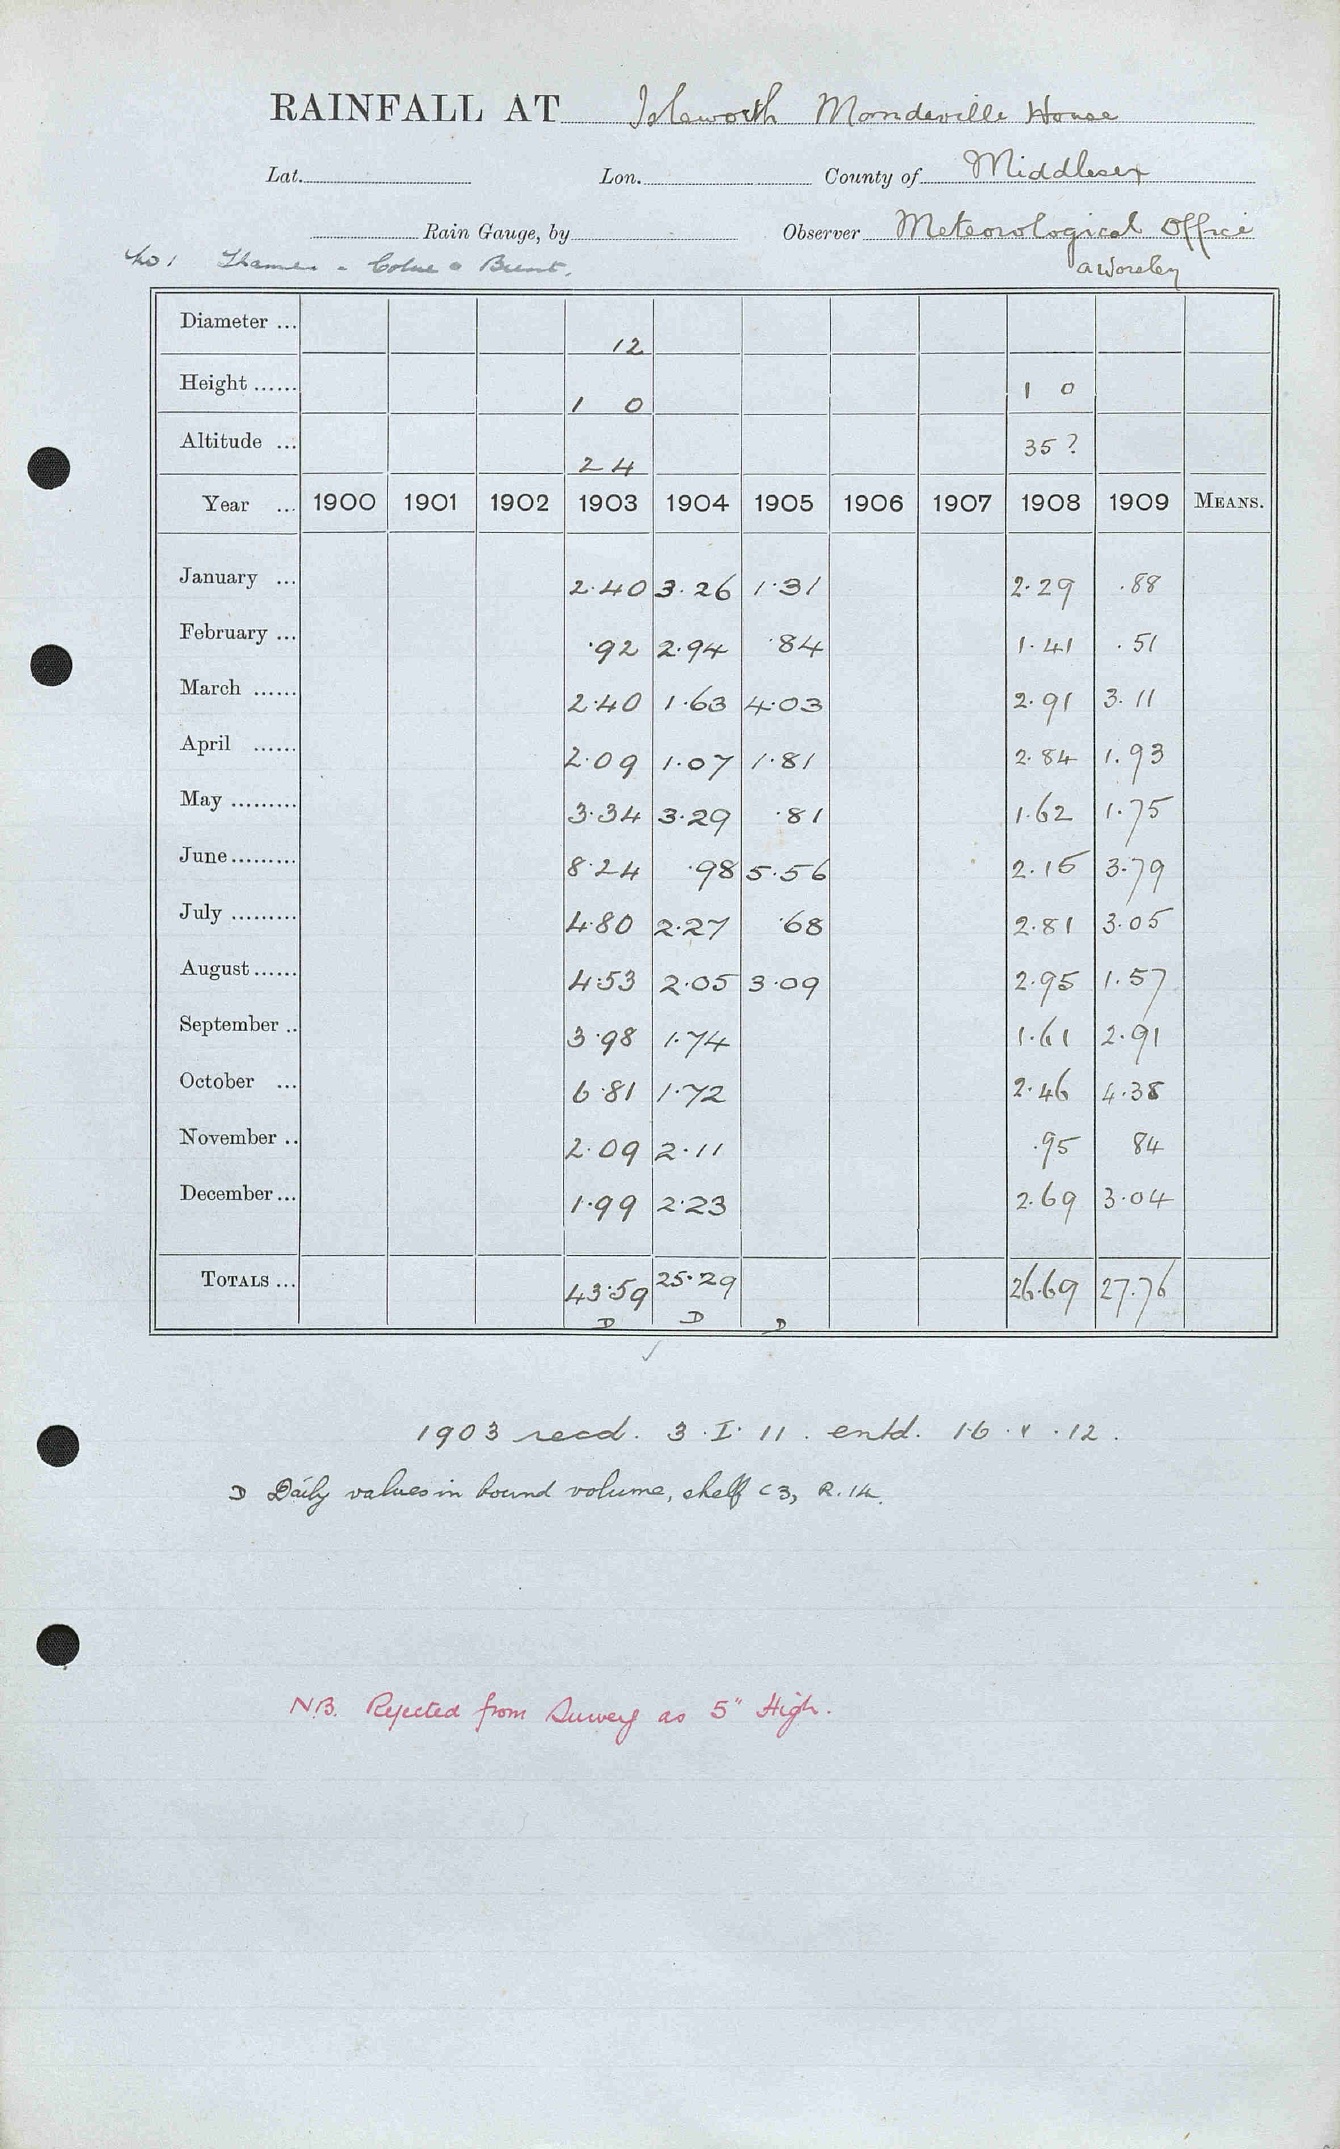 RAINFALL AT Isleworth Mandeville House
Lat. Lon. County of Middlesex
Rain Gauge, by Observer Meteorological Office
Thames - Colne & Brent. A Worsley
Diameter ... 12
Height ...... 1 0 1 0
Altitude ... 24 35?
Year ... 1900 1901 1902 1903 1904 1905 1906 1907 1908 1909 MEANS.
January ... 2.40 3.26 1.31 2.29 .88
February ... .92 2.94 .84 1.41 .51
March ...... 2.40 1.63 4.03 2.91 3.11
April ...... 2.09 1.07 1.81 2.84 1.93
May ......... 3.34 3.29 .81 1.62 1.75
June......... 8.24 .98 5.56 2.15 3.79
July ......... 4.80 2.27 .68 2.81 3.05
August...... 4.53 2.05 3.09 2.95 1.57
September .. 3.98 1.74 1.61 2.91
October ... 6.81 1.72 2.46 4.38
November .. 2.09 2.11 .95 84
December... 1.99 2.23 2.69 3.04
TOTALS ... 43.59 25.29 26.69 27.76
D D D
1903 recd. 3.I.11. entd. 16.V.12.
D Daily values in bound volume, shelf C3, R.14.
N.B. Rejected from Survey as 5" High.